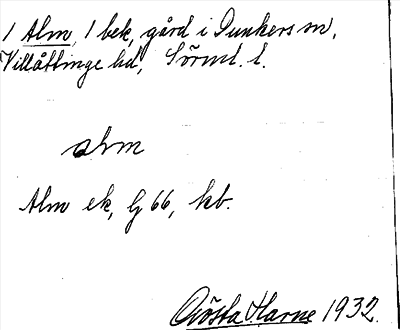 1 Alm, 1 bek, gård i Dunkers sn,
Villåttinge hd, Sörml. l.
alm
Alm ek, G 66, kb.
Gösta Harne 1932.